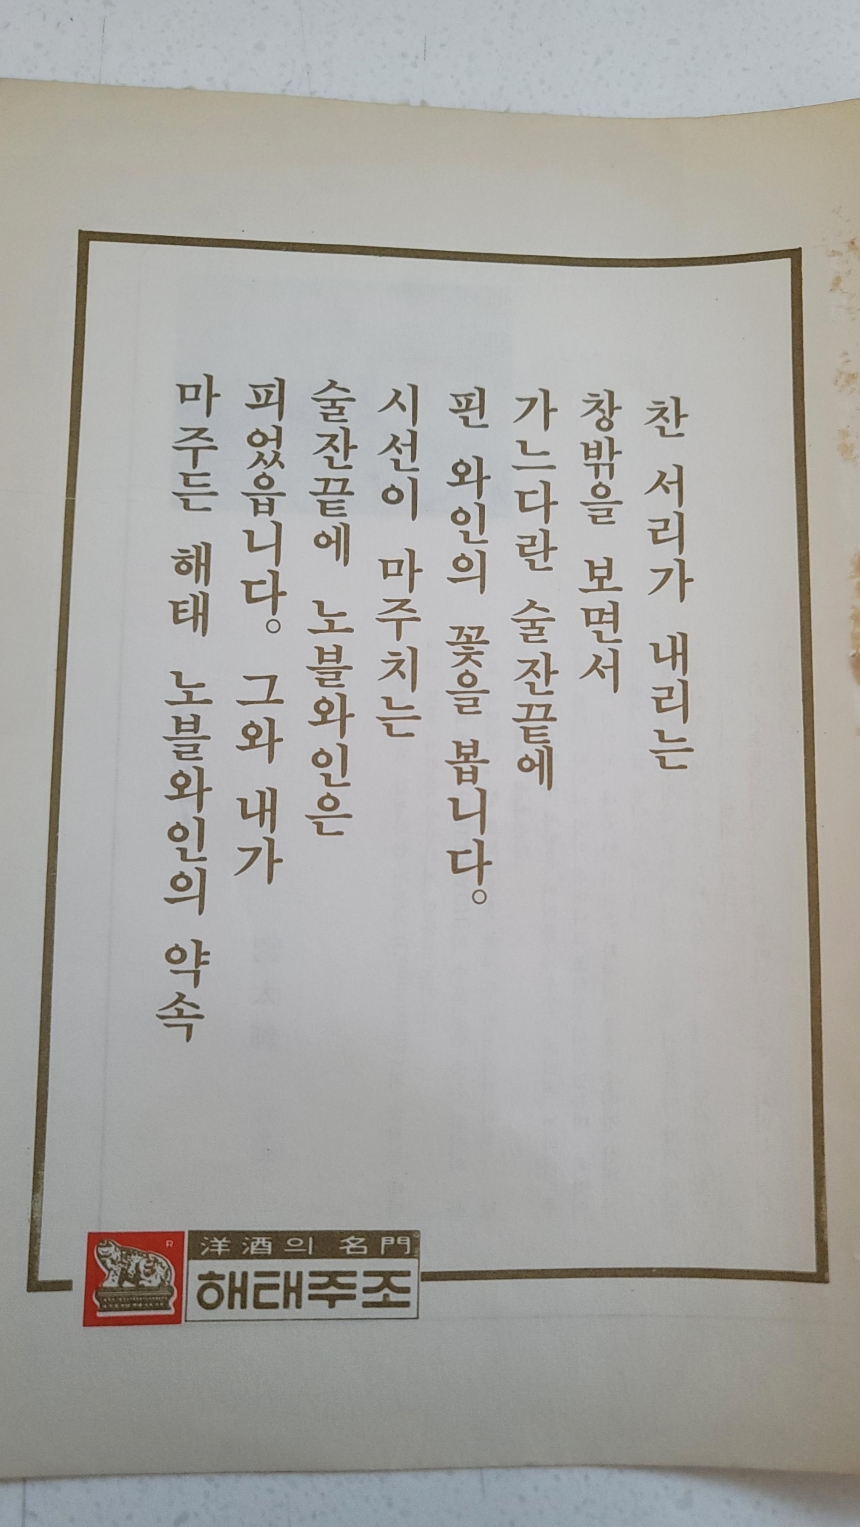 찬 서리가 내리는
창밖을 보면서
가느다란 술잔끝에
핀 와인의 꽃을 봅니다。
시선이 마주치는
술잔끝에 노블와인은
피었읍니다。 그와 내가
마주든 해태 노블와인의 약속
R
洋酒의 名門
해태주조